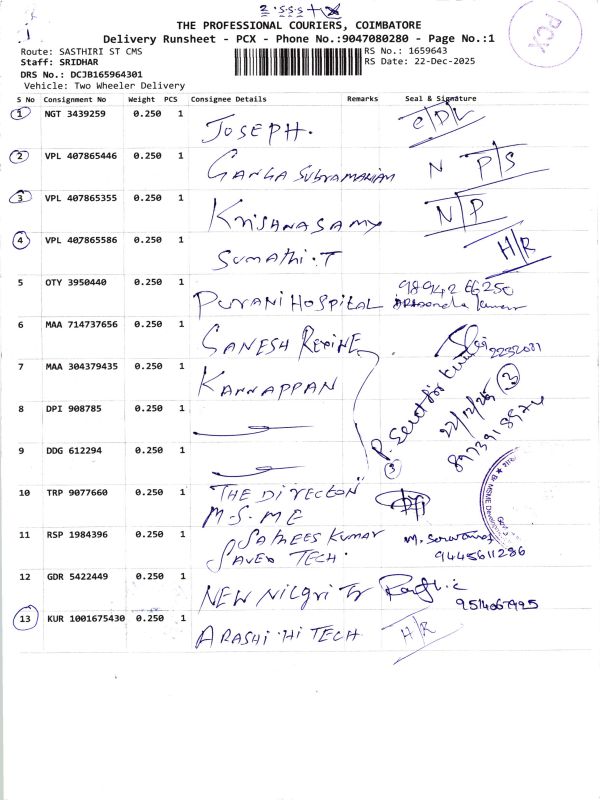 THE PROFESSIONAL COURIERS, COIMBATORE
Delivery Runsheet - PCX - Phone No.:9047080280 - Page No.:1
PCX
Route: SASTHIRI ST CMS
RS No.: 1659643
Staff: SRIDHAR
RS Date: 22-Dec-2025
DRS No.: DCJB165964301
Vehicle: Two Wheeler Delivery
S No Consignment No Weight PCS Consignee Details Remarks Seal & Signature
1 NGT 3439259 0.250 1 JOSEPH. C/D/L
2 VPL 407865446 0.250 1 GANGA SUBRAMANIAM N P/S
3 VPL 407865355 0.250 1 KRISHNASAMY N/P
4 VPL 407865586 0.250 1 SUMATHI.T H/R
5 OTY 3950440 0.250 1 PURANI HOSPITAL 98942 66250
6 MAA 714737656 0.250 1 GANESH REXINE 2232031
7 MAA 304379435 0.250 1 KANNAPPAN
8 DPI 908785 0.250 1
22/12/25 3
8973918974
9 DDG 612294 0.250 1
3
10 TRP 9077660 0.250 1 THE DIRECTOR
M.S.M.E
11 RSP 1984396 0.250 1 SATHEES KUMAR
SAVER TECH. 9445611286
12 GDR 5422449 0.250 1 NEW NILGRI Tr
9514067925
13 KUR 1001675430 0.250 1 ARASHI HI TECH H/R